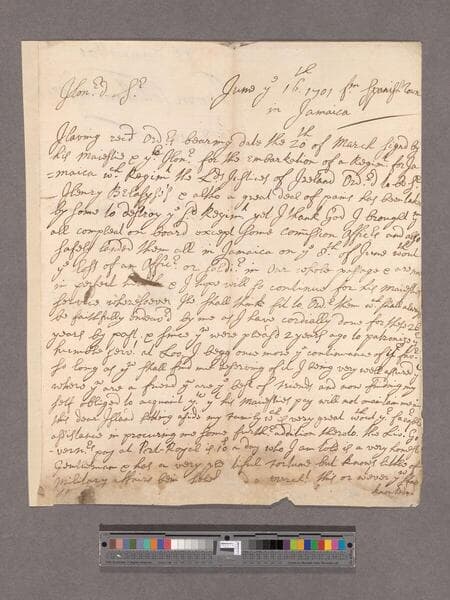 Hon.d Sr June ye 16th 1701 fm Spanish Town
in Jamaica
Having recd Ordrs bearing date the 20th of March Signd by
his Majestie & yr Honr for the embarkation of a Regimt for Ja=
=maica wch Regimt the Lds Justices of Ireland Ordrd to be Sr
Henry Belasys's & altho a great deal of pains has been taken
by some to destroy ye sd Regimt yet I thank God I brought ym
all compleat on board except some Comission Officrs and also
safely landed them all in Jamaica on ye 8th of June wthout
ye loss of an Officr or Soldr in our whole passage & are now
in perfect health & I hope will so continue for his Majesties
service wheresoever He shall think fit to Ordr them wch shall always
be faithfully endeavrd by me as I have cordially done for these 26
years by past & since yu were pleasd 2 years ago to patronize yr
humble Servt at Loo, I begg once more ye continuance of it for
so long as yu shall find me deserving of it I being very well assurd yt
where yu are a friend yu are ye best of friends and now finding my
self obliged to acquaint yu yt his Majesties pay will not maintain me in
this dear Island setting aside my family wch is very great wthout yr
assistance in procuring me some further addition thereto. The Go=
=vernrs pay at Port-Royal is a day who I am told is a very honest
Gentleman & has a very plentiful fortune but knows little of
Military affairs being